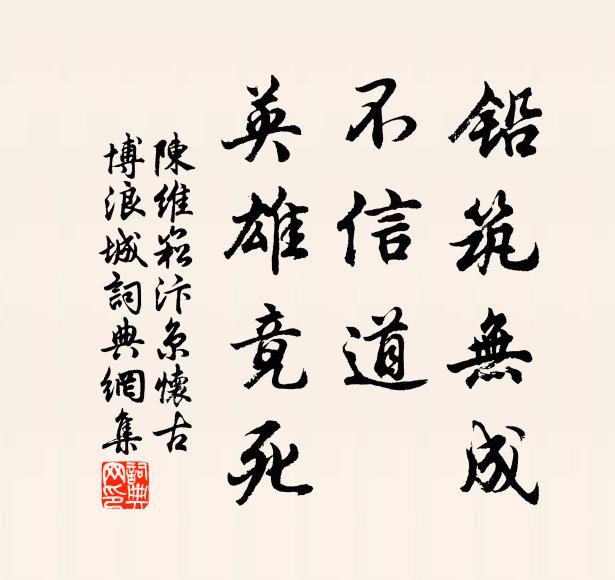 鉛筑無成
不信道
英雄竟死
陳維崧汴京懷古
博浪城詞典網集
詞典网印